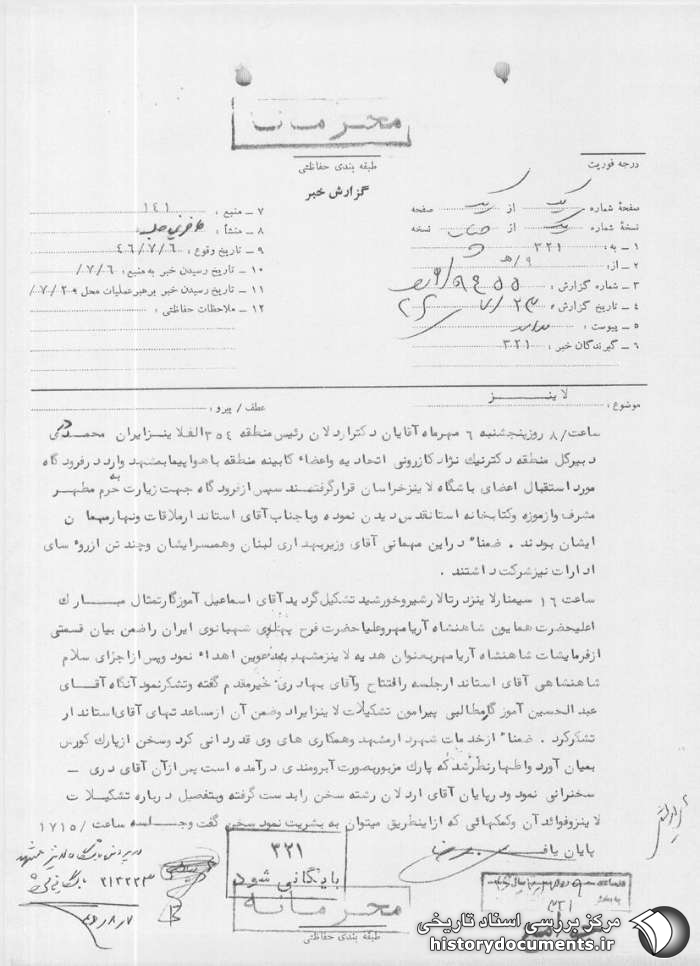 محرمانه
طبقه بندی حفاظتی
گزارش خبر
درجه فوریت
صفحهٔ شماره یک از یک صفحه
نسخهٔ شماره یک از نسخه
۱ ـ به : ۳۲۱
۲ ـ از: ۹/ه
۳ ـ شماره گزارش :
۴ ـ تاریخ گزارش :
۵ ـ پیوست : ندارد
۶ ـ گیرندگان خبر : ۳۲۱
۷ ـ منبع : ۱۴۱
۸ ـ منشأ :
۹ ـ تاریخ وقوع : ۴۶/۷/۶
۱۰ ـ تاریخ رسیدن خبر به منبع: ۷/۶/
۱۱ ـ تاریخ رسیدن خبر برهبر عملیات محل ۷/۲۰۹/
۱۲ ـ ملاحظات حفاظتی :
موضوع : لاینز
عطف / پیرو :
ساعت /۸ روز پنجشنبه ۶ مهرماه آقایان دکتر اردلان رئیس منطقه ۳۵۴ الف لاینز ایران محمد دری
دبیرکل منطقه دکتر نیک نژاد کازرونی اتحادیه واعضاء کابینه منطقه با هواپیما بمشهد وارد در فرودگاه
مورد استقبال اعضای باشگاه لاینز خراسان قرار گرفتند سپس از فرودگاه جهت زیارت به حرم مطهر
مشرف واز موزه وکتابخانه استانقدس دیدن نموده وبا جناب آقای استاندار ملاقات ونهار مهمان
ایشان بودند . ضمناً در این مهمانی آقای وزیر بهداری لبنان وهمسر ایشان وچند تن از روسای
ادارات نیز شرکت داشتند .
ساعت ۱۶ سمینار لاینز در تالار شیر وخورشید تشکیل گردید آقای اسماعیل آموزگار تمثال مبارک
اعلیحضرت همایون شاهنشاه آریامهر وعلیاحضرت فرح پهلوی شهبانوی ایران را ضمن بیان قسمتی
از فرمایشات شاهنشاه آریامهر بعنوان هدیه لاینز مشهد بمدعوین اهداء نمود وپس از اجرای سلام
شاهنشاهی آقای استاندار جلسه را افتتاح وآقای بهادری خیر مقدم گفته وتشکر نمود آنگاه آقای
عبدالحسین آموزگار مطالبی پیرامون تشکیلات لاینز ایراد وضمن آن از مساعدتهای آقای استاندار
تشکر کرد . ضمناً از خدمات شهردار مشهد وهمکاری های وی قدردانی کرد وسخن از پارک کورس
بمیان آورد واظهار نظر شد که پارک مزبور بصورت آبرومندی درآمده است پس از آن آقای دری ـ
سخنرانی نمود ودر پایان آقای اردلان رشته سخن را بدست گرفته وبتفصیل درباره تشکیلات
لاینز وفوائد آن وکمکهائی که از اینطریق میتوان به بشریت نمود سخن گفت وجلسه ساعت /۱۷۱۵
پایان یافت
۳۲۱
بایگانی شود
محرمانه
طبقه بندی حفاظتی
۲۱۲۲۲۳
مرکز بررسی اسناد تاریخی
historydocuments.ir